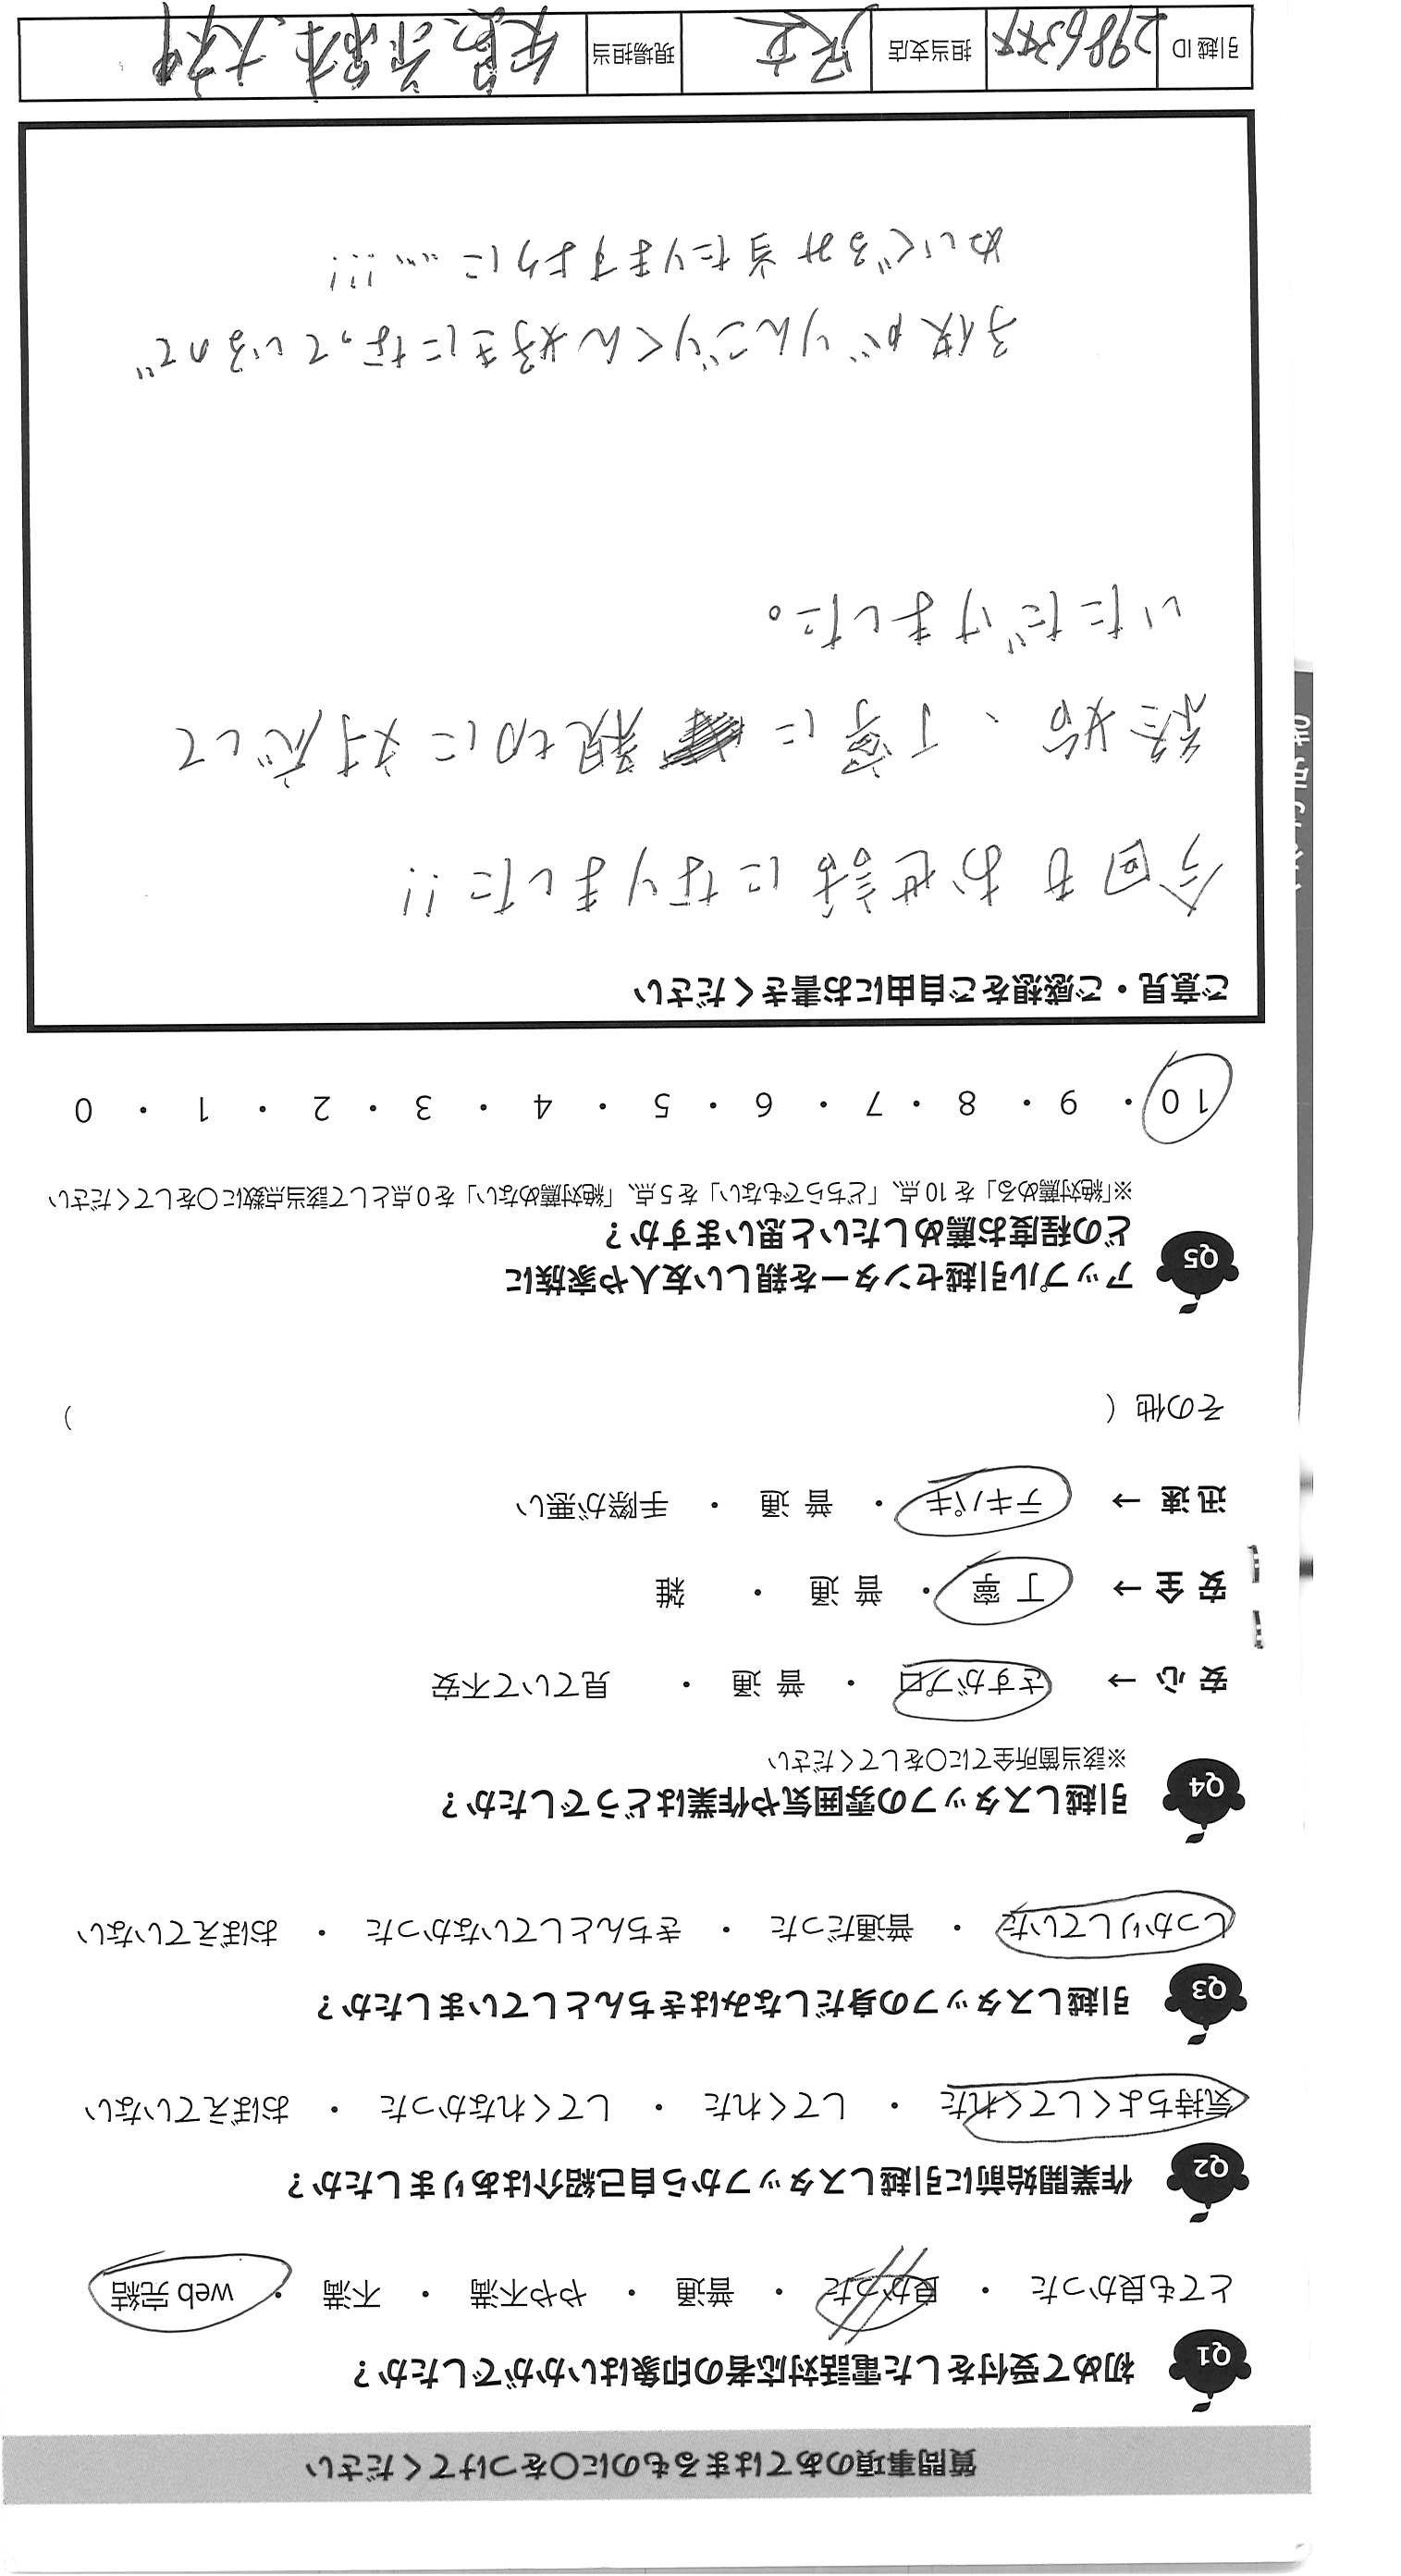 質問事項のあてはまるものに〇をつけてください
Q1 初めて受付をした電話対応者の印象はいかがでしたか？
とても良かった ・ 良かった ・ 普通 ・ やや不満 ・ 不満 ・ web 完結
Q2 作業開始前に引越しスタッフから自己紹介はありましたか？
気持ちよくしてくれた ・ してくれた ・ してくれなかった ・ おぼえていない
Q3 引越しスタッフの身だしなみはきちんとしていましたか？
しっかりしていた ・ 普通だった ・ きちんとしていなかった ・ おぼえていない
Q4 引越しスタッフの雰囲気や作業はどうでしたか？
※該当箇所全てに〇をしてください
安 心 → さすがプロ ・ 普 通 ・ 見ていて不安
安 全 → 丁 寧 ・ 普 通 ・ 雑
迅 速 → テキパキ ・ 普 通 ・ 手際が悪い
その他（ ）
Q5 アップル引越センターを親しい友人や家族に
どの程度お薦めしたいと思いますか？
※「絶対薦める」を 10 点、「どちらでもない」を 5 点、「絶対薦めない」を 0 点として該当点数に〇をしてください
10 ・ 9 ・ 8 ・ 7 ・ 6 ・ 5 ・ 4 ・ 3 ・ 2 ・ 1 ・ 0
ご意見・ご感想をご自由にお書きください
今回もお世話になりました!!
終始、丁寧に親切に対応して
いただけました。
子供がりんごりくん好きになっているので
ぬいぐるみ当たりますように…!!!
引越 ID 担当支店 足立 現場担当